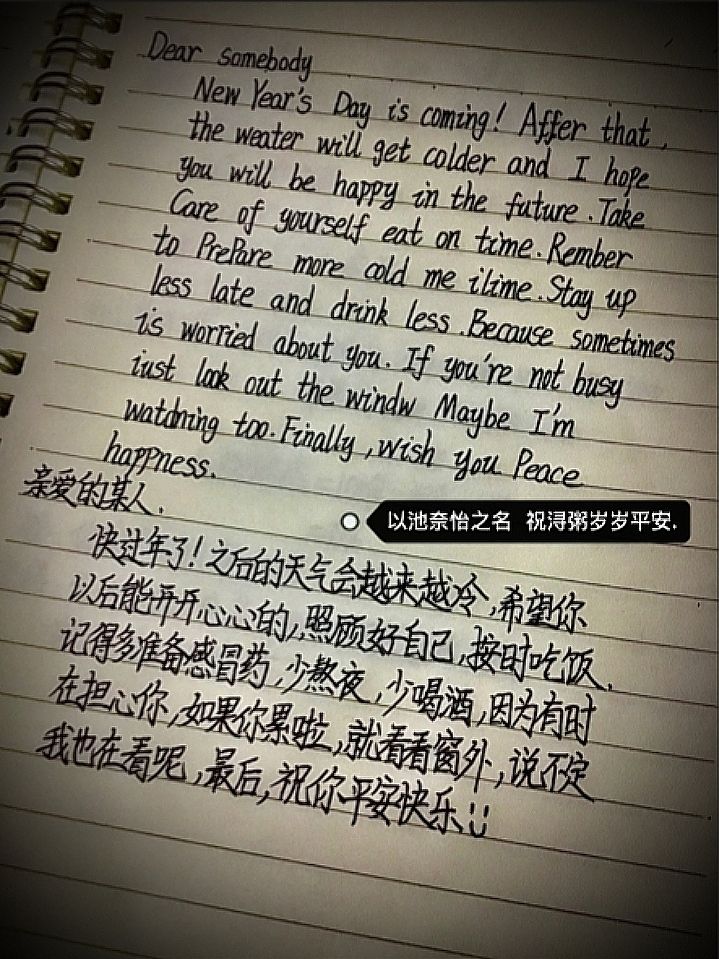 Dear somebody
New Year's Day is coming! Affer that,
the weater will get colder and I hope
you will be happy in the future. Take
Care of yourself eat on time. Rember
to PrePare more cold me ilime. Stay up
less late and drink less. Because sometimes
is worried about you. If you're not busy
iust look out the windw Maybe I'm
watdning too. Finally, wish you Peace
happness.
亲爱的某人.
以池奈怡之名 祝浔粥岁岁平安.
快过年了!之后的天气会越来越冷,希望你
以后能开开心心的,照顾好自己,按时吃饭.
记得多准备感冒药,少熬夜,少喝酒,因为有时
在担心你,如果你累啦,就看看窗外,说不定
我也在看呢,最后,祝你平安快乐